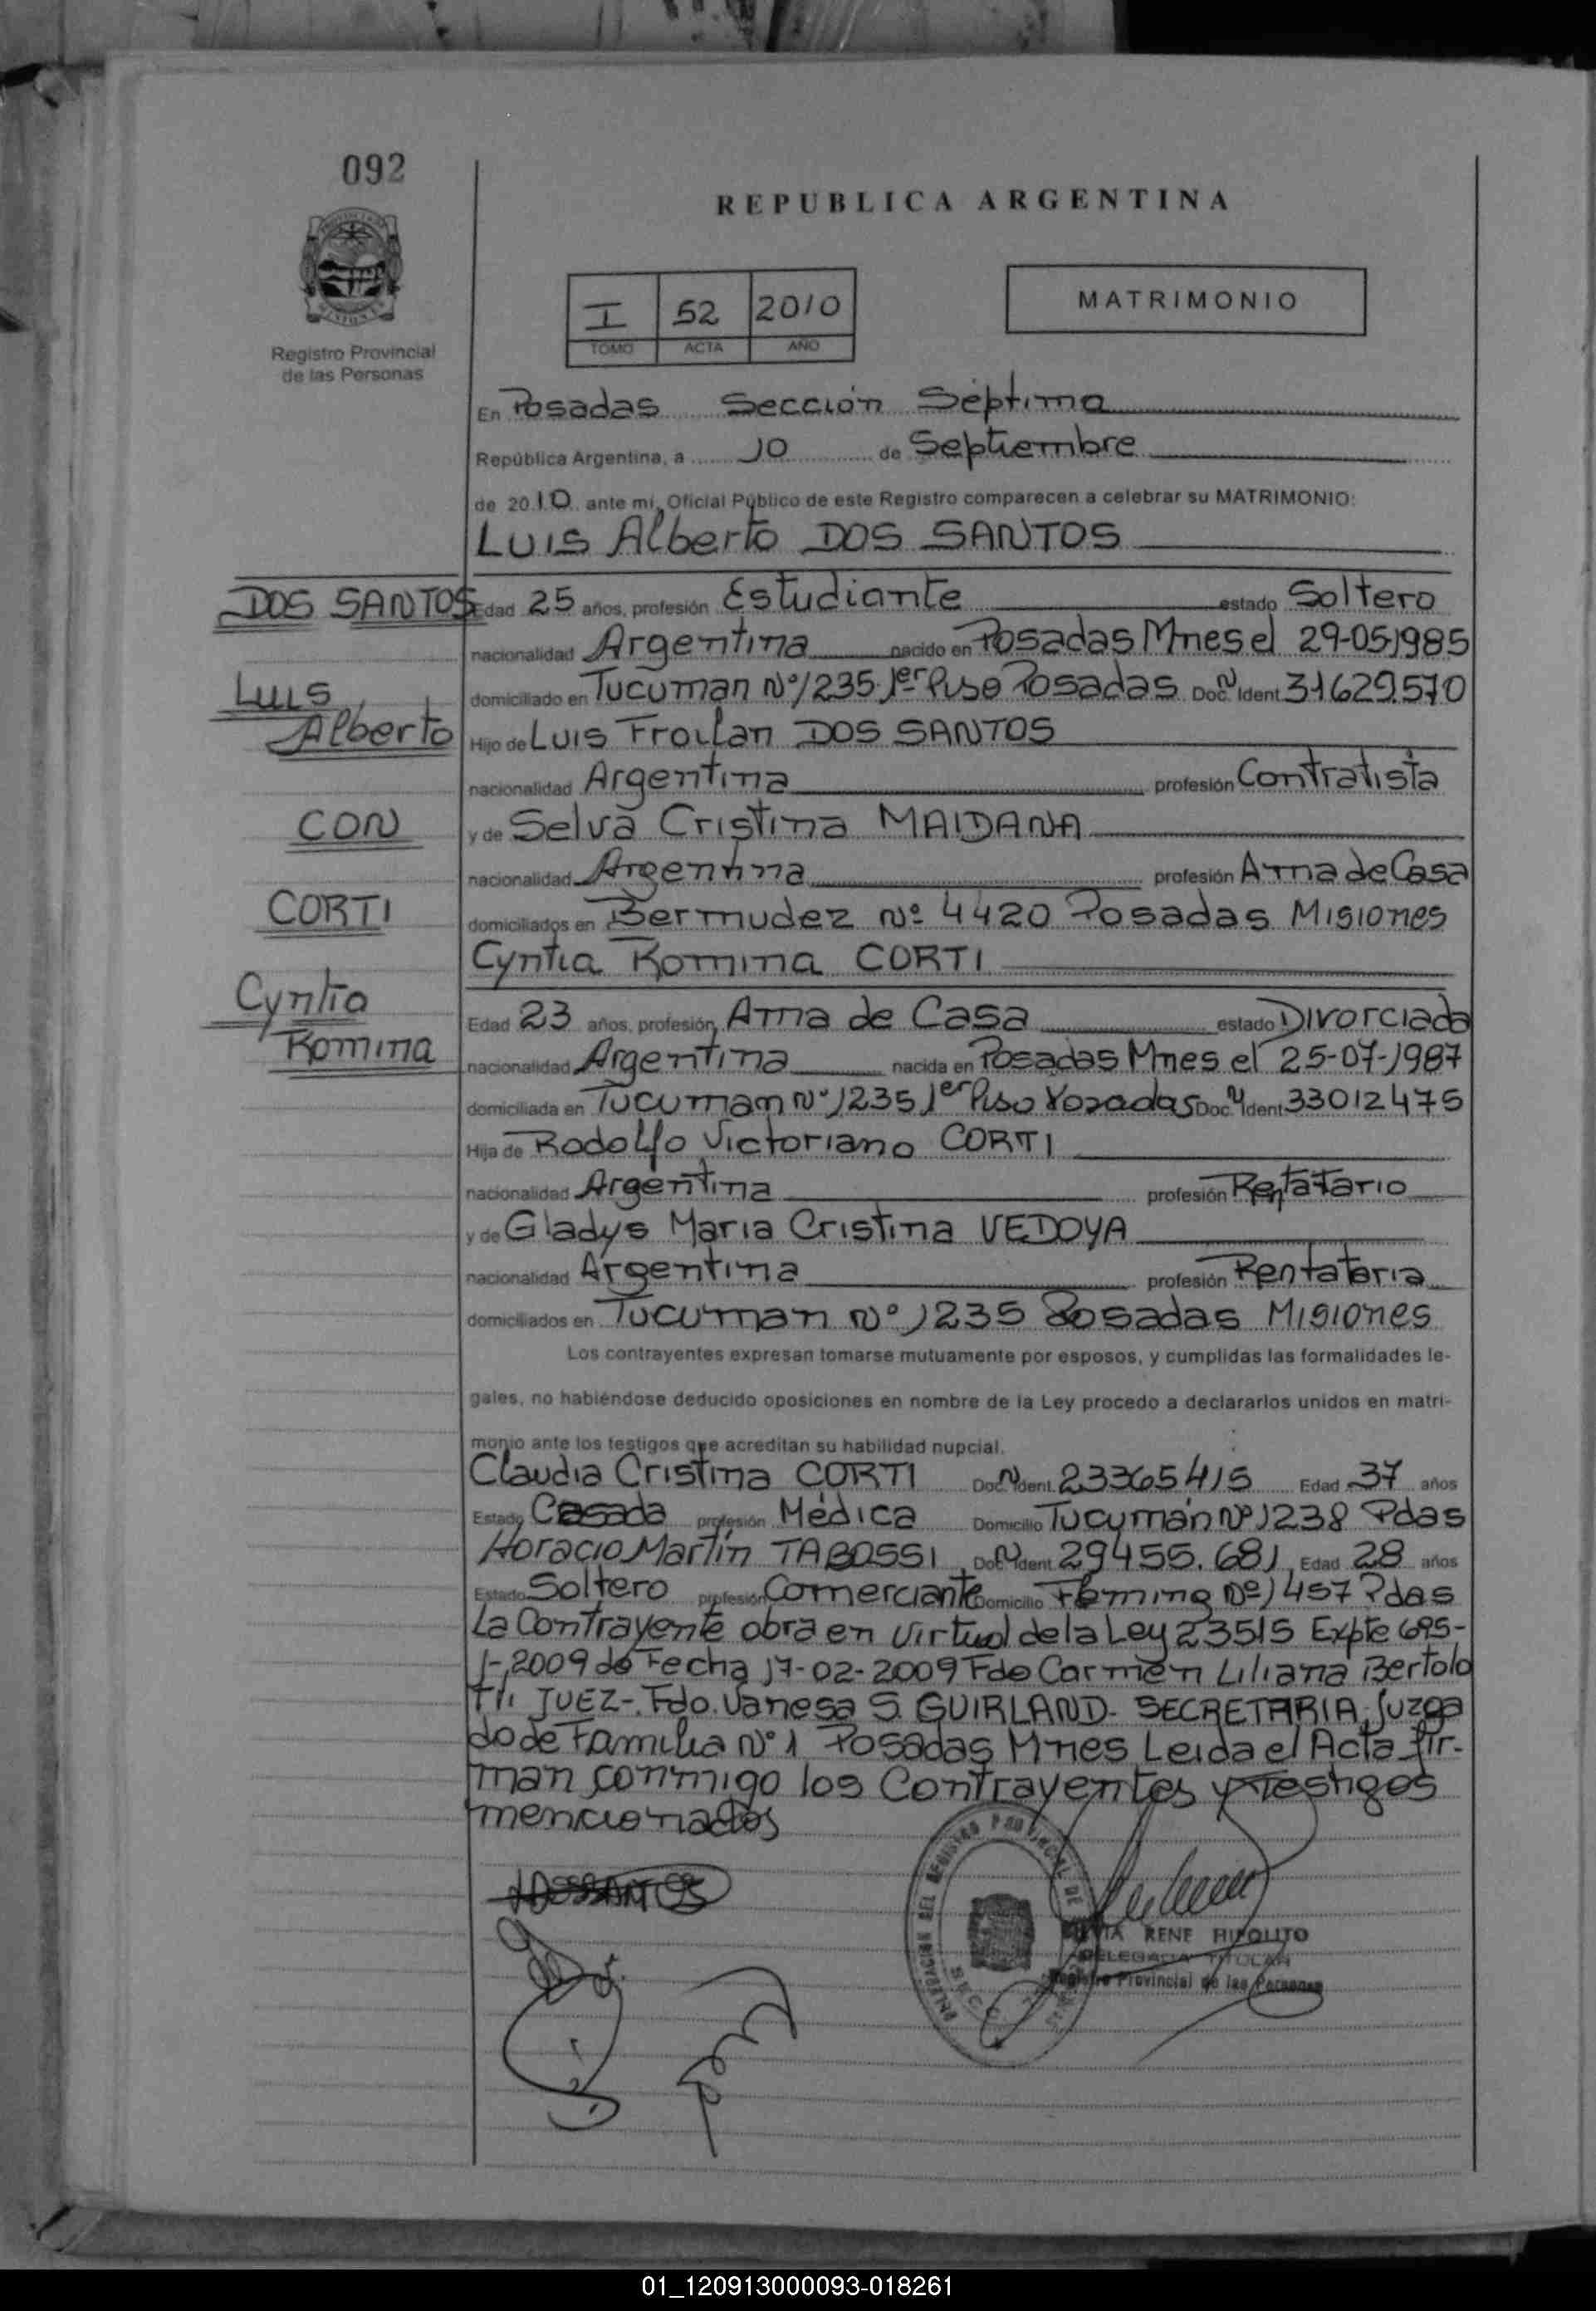 092
REPUBLICA ARGENTINA
I 52 2010
TOMO ACTA AÑO
MATRIMONIO
Registro Provincial
de las Personas
En Posadas Sección Séptima
República Argentina, a 10 de Septiembre
de 2010 ante mi, Oficial Público de este Registro comparecen a celebrar su MATRIMONIO:
LUIS Alberto DOS SANTOS
DOS SANTOS
Edad 25 años, profesión Estudiante estado Soltero
nacionalidad Argentina nacido en Posadas Mnes el 29-05-1985
LUIS
domiciliado en Tucuman Nº 1235 1er Piso Posadas Doc. N Ident 31629.570
Alberto
Hijo de LUIS Froilan DOS SANTOS
nacionalidad Argentina profesión Contratista
CON
y de Selva Cristina MAIDANA
nacionalidad Argentina profesión Ama de Casa
CORTI
domiciliados en Bermudez Nº 4420 Posadas Misiones
Cyntia Romina CORTI
Cyntia
Edad 23 años, profesión Ama de Casa estado Divorciada
Romina
nacionalidad Argentina nacida en Posadas Mnes el 25-07-1987
domiciliada en Tucuman Nº 1235 1er Piso Posadas Doc. N Ident 33012475
Hija de Rodolfo Victoriano CORTI
nacionalidad Argentina profesión Rentatario
y de Gladys Maria Cristina VEDOYA
nacionalidad Argentina profesión Rentataria
domiciliados en Tucuman Nº 1235 Posadas Misiones
Los contrayentes expresan tomarse mutuamente por esposos, y cumplidas las formalidades le-
gales, no habiéndose deducido oposiciones en nombre de la Ley procedo a declararlos unidos en matri-
monio ante los testigos que acreditan su habilidad nupcial.
Claudia Cristina CORTI Doc. N Ident. 23365415 Edad 37 años
Estado Casada profesión Médica Domicilio Tucumán Nº 1238 Pdas
Horacio Martín TABOSSI Doc. N Ident 29455.681 Edad 28 años
Estado Soltero profesión Comerciante Domicilio Fleming Nº 1457 Pdas
La Contrayente obra en virtud de la Ley 23515 Expte 695-
1-2009 de Fecha 17-02-2009 Fdo Carmen Liliana Bertolo
JUEZ-. Fdo. Vanesa S. GUIRLAND- SECRETARIA Juzga
do de Familia Nº 1 Posadas Mnes Leida el Acta fir-
man conmigo los Contrayentes y Testigos
mencionados
RENE HIPOLITO
DELEGADA TITULAR
Registro Provincial de las Personas
01_120913000093-018261